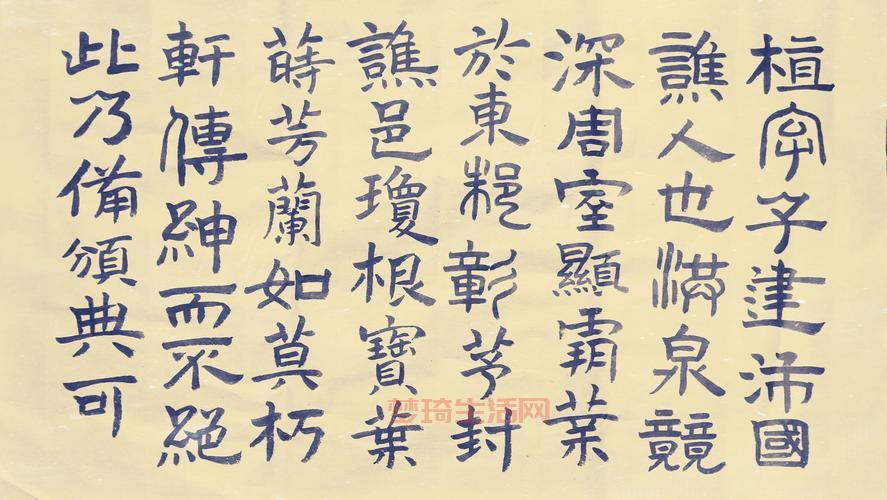 植字子建沛國
譙人也洪泉競
深周室顯霸業
於東邾彰茅封
譙邑瓊根寶葉
蒔芳蘭如莫朽
軒傳紳而不絕
此乃備頒典可
梦琦生活网